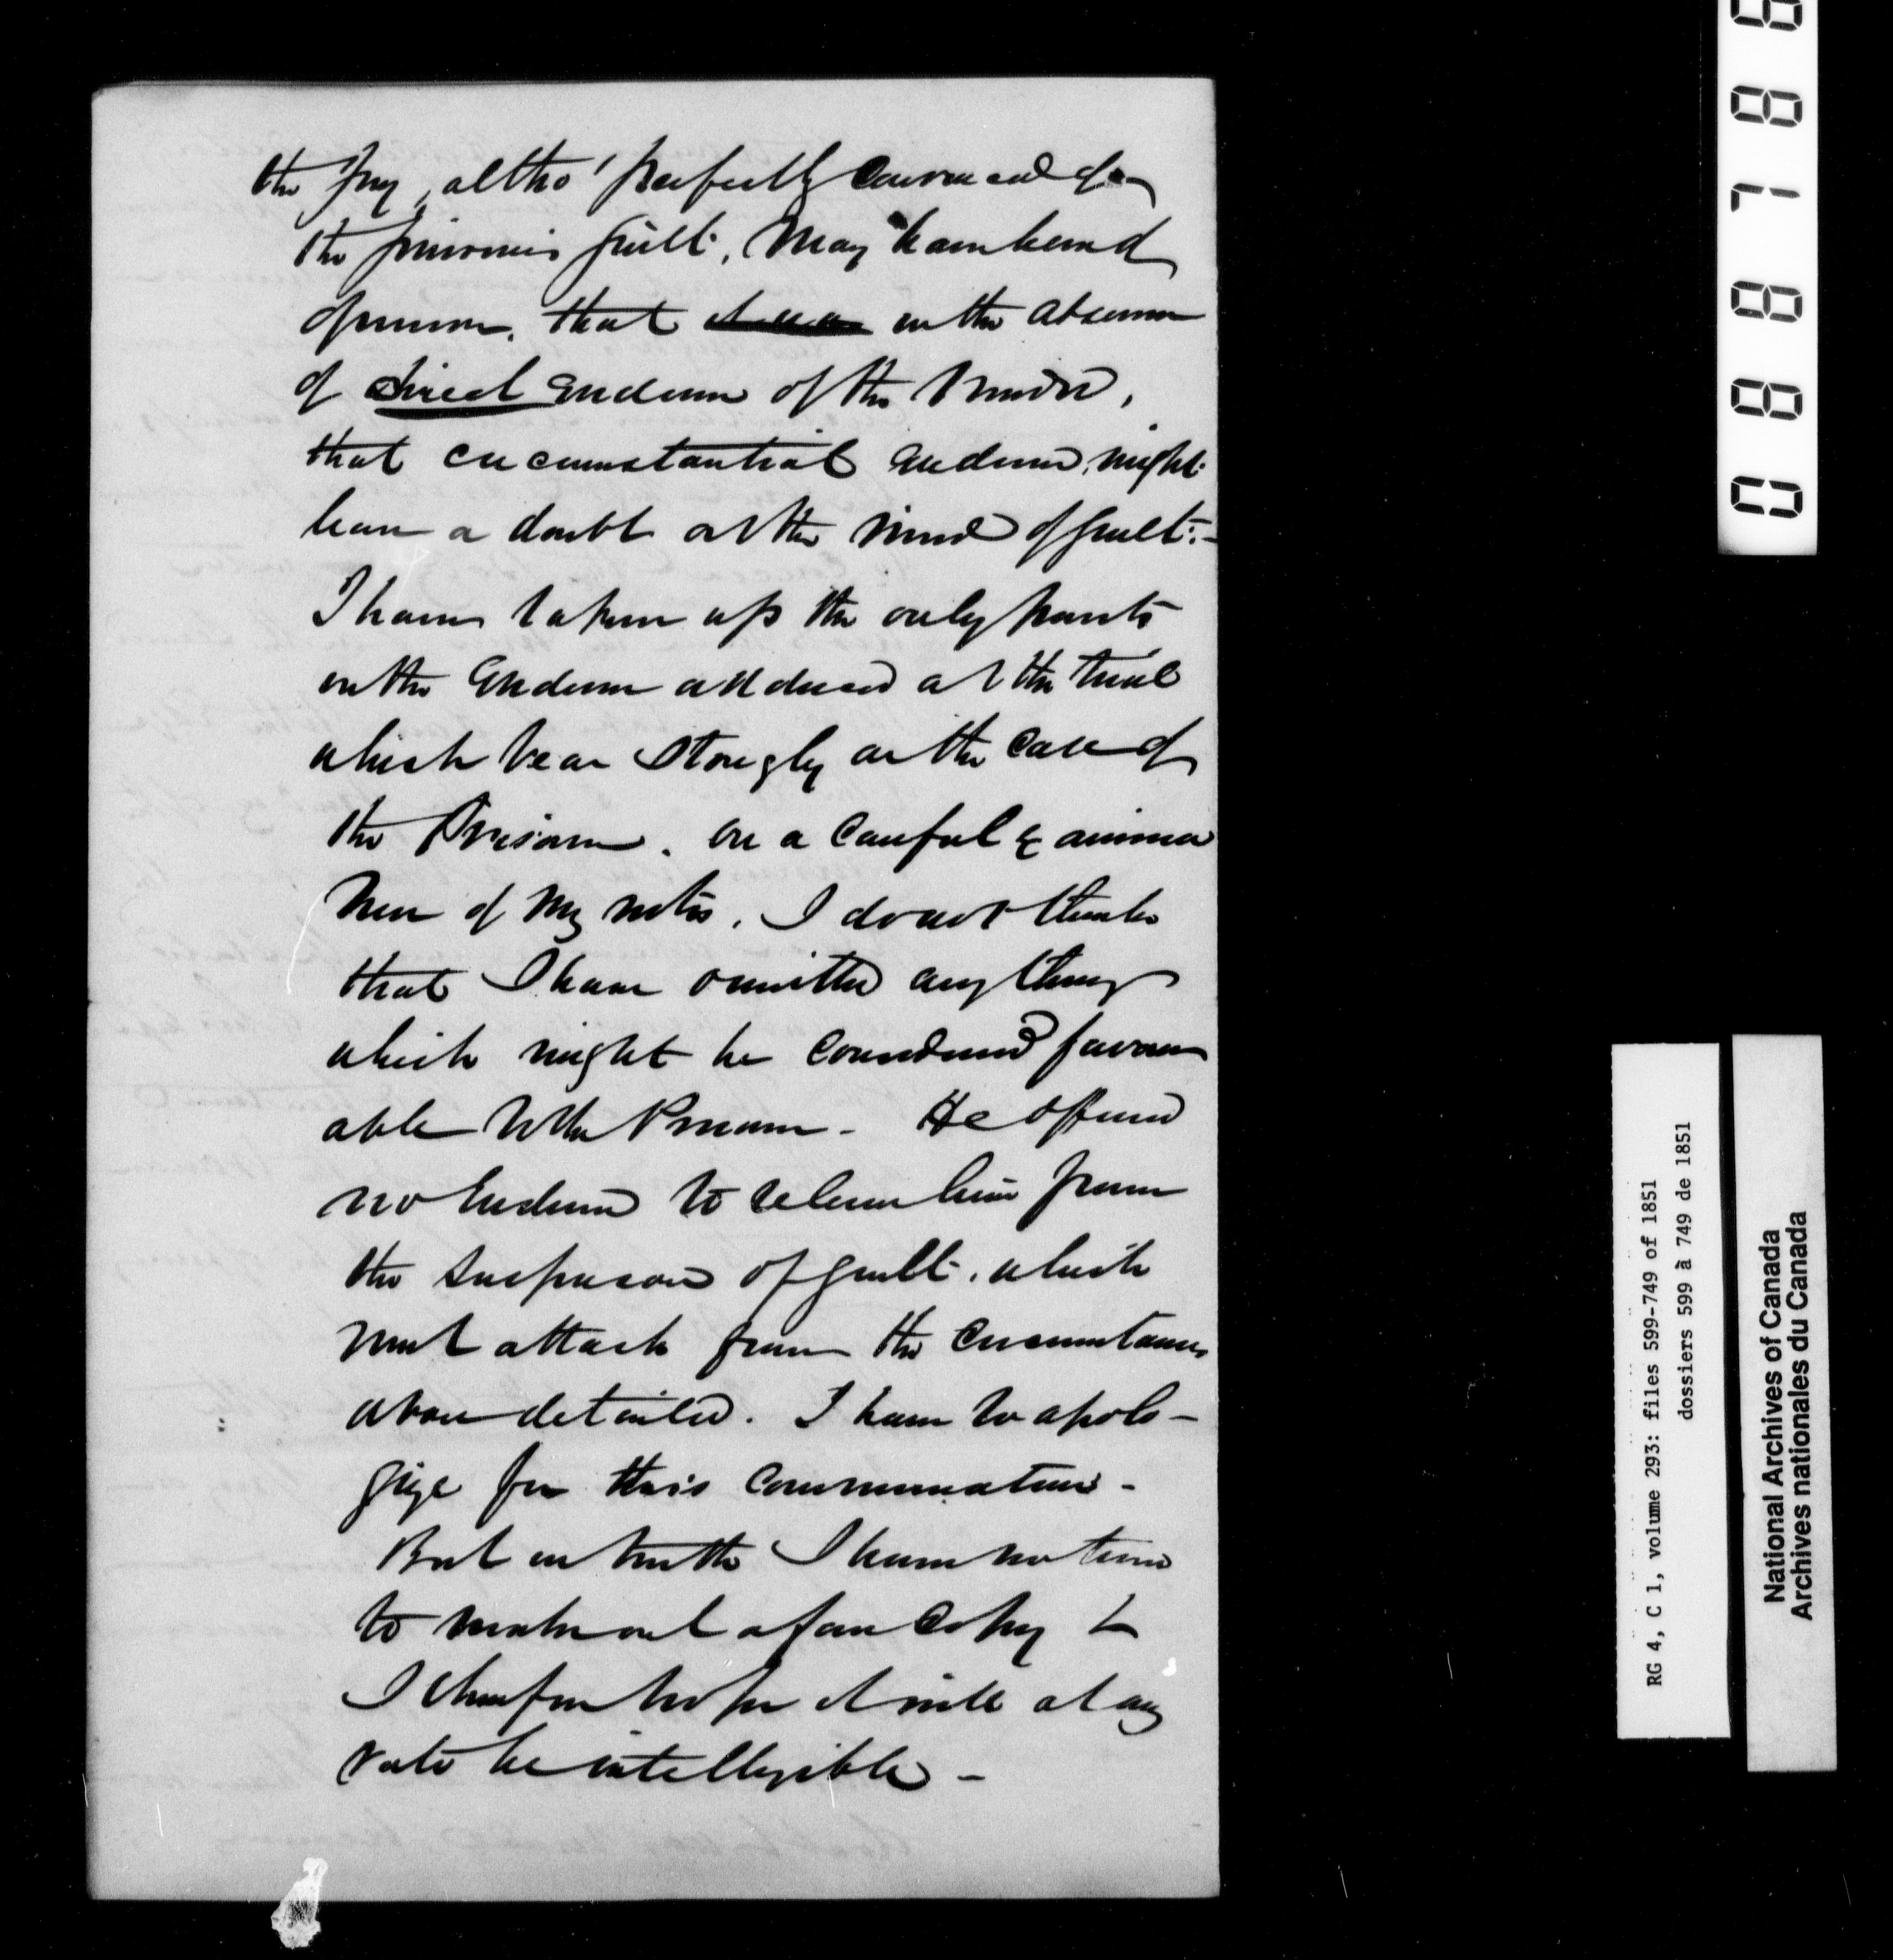 the Jury, altho' perfectly convinced of
the prisoners guilt, may have been of
opinion, that it was in the absence
of direct Evidence of the Murder,
that circumstantial Evidence, might
leave a doubt on the mind of guilt.-
I have taken up the only points
in the Evidence adduced at the trial
which bear strongly on the case of
the Prisoner. On a careful Examina
tion of my notes, I do not think
that I have omitted anything
which might be considered favour
able to the Prisoner - He offered
no Evidence to relieve him from
the suspicion of guilt, which
must attach from the circumstances
above detailed. I have to apolo-
gize for this communication -
But in truth I have no time
to make out a fair Copy &
I therefore hope it will at any
rate be intelligible -
088788
RG 4, C 1, volume 293: files 599-749 of 1851
dossiers 599 à 749 de 1851
National Archives of Canada
Archives nationales du Canada